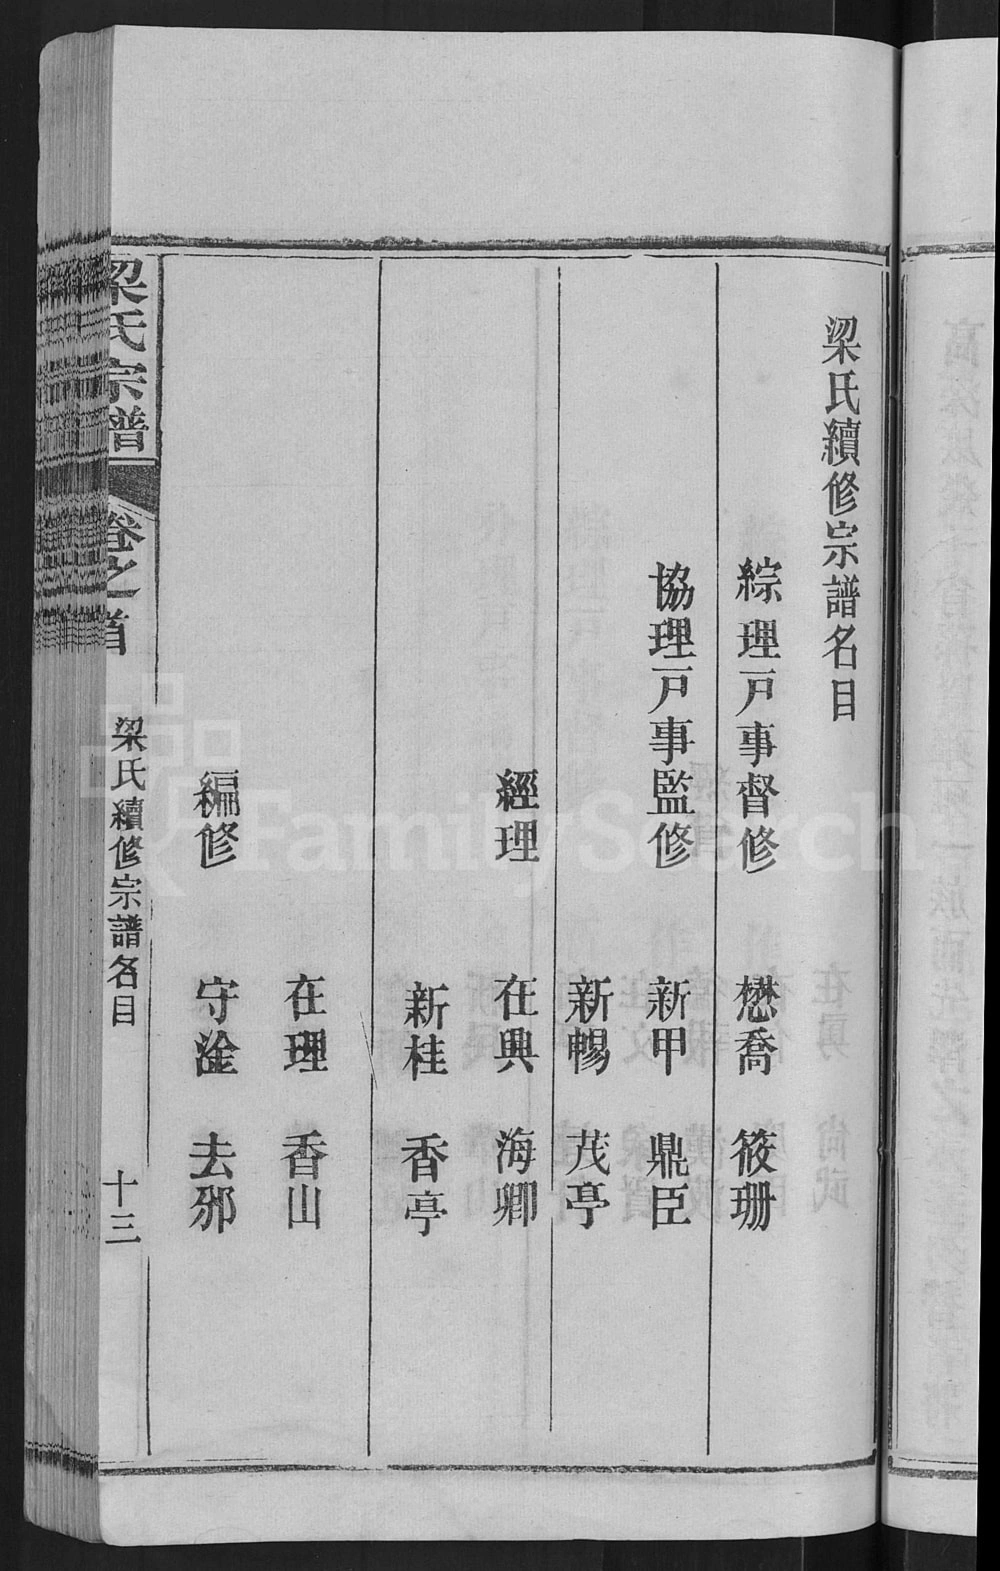 梁氏續修宗譜名目
綜理戸事督修 懋喬 筱珊
協理戸事監修 新甲 鼎臣
新暢 茂亭
經理 在興 海卿
新桂 香亭
在理 香山
編修 守淦 去邪
梁氏宗譜 卷之首 梁氏續修宗譜名目 十三
FamilySearch